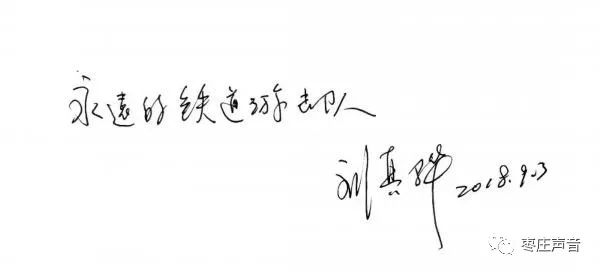 永遠的铁道游击队人
刘真骅 2018.9.3
枣庄声音